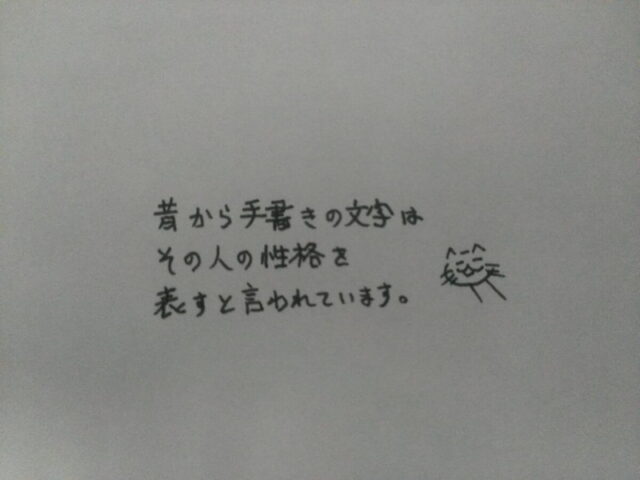 昔から手書きの文字は
その人の性格を
表すと言われています。